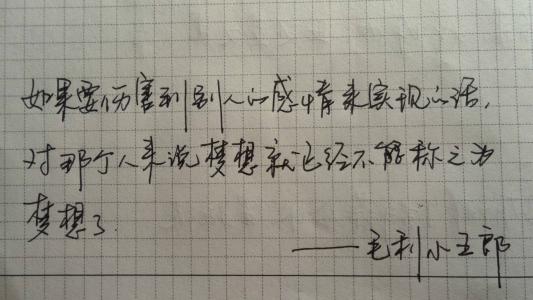 如果要伤害到别人的感情来实现的话，
对那个人来说梦想就已经不能称之为
梦想了.
——毛利小五郎